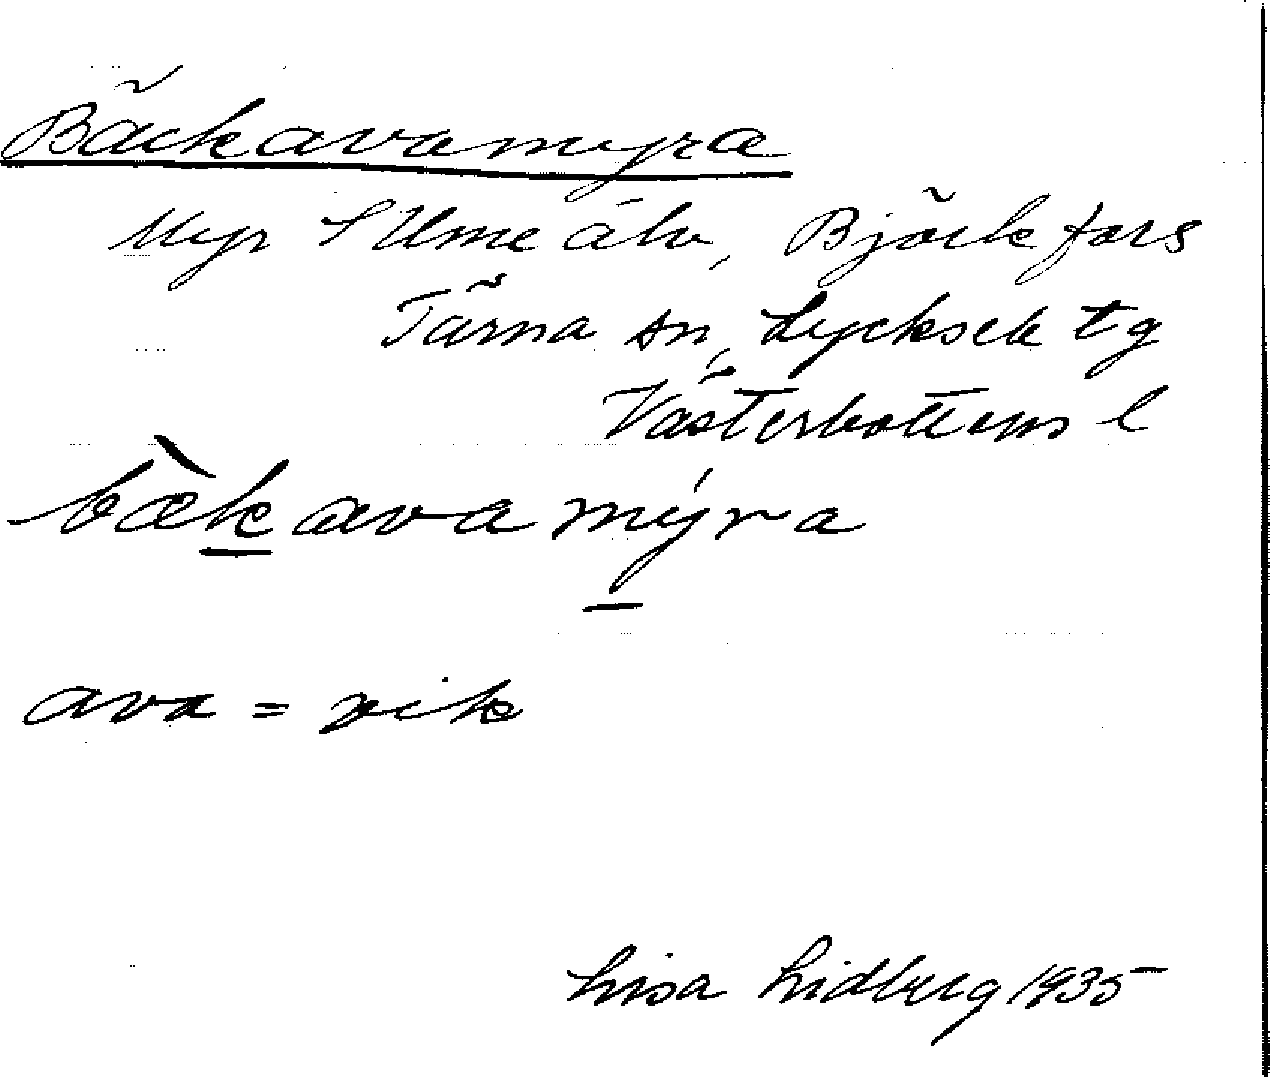 Bäckavamyra
Myr S Ume älv, Björkfors
Tärna sn, Lycksele tg
Västerbottens l
bæ̀kavamýra
ava = vik
Lisa Lidberg 1935